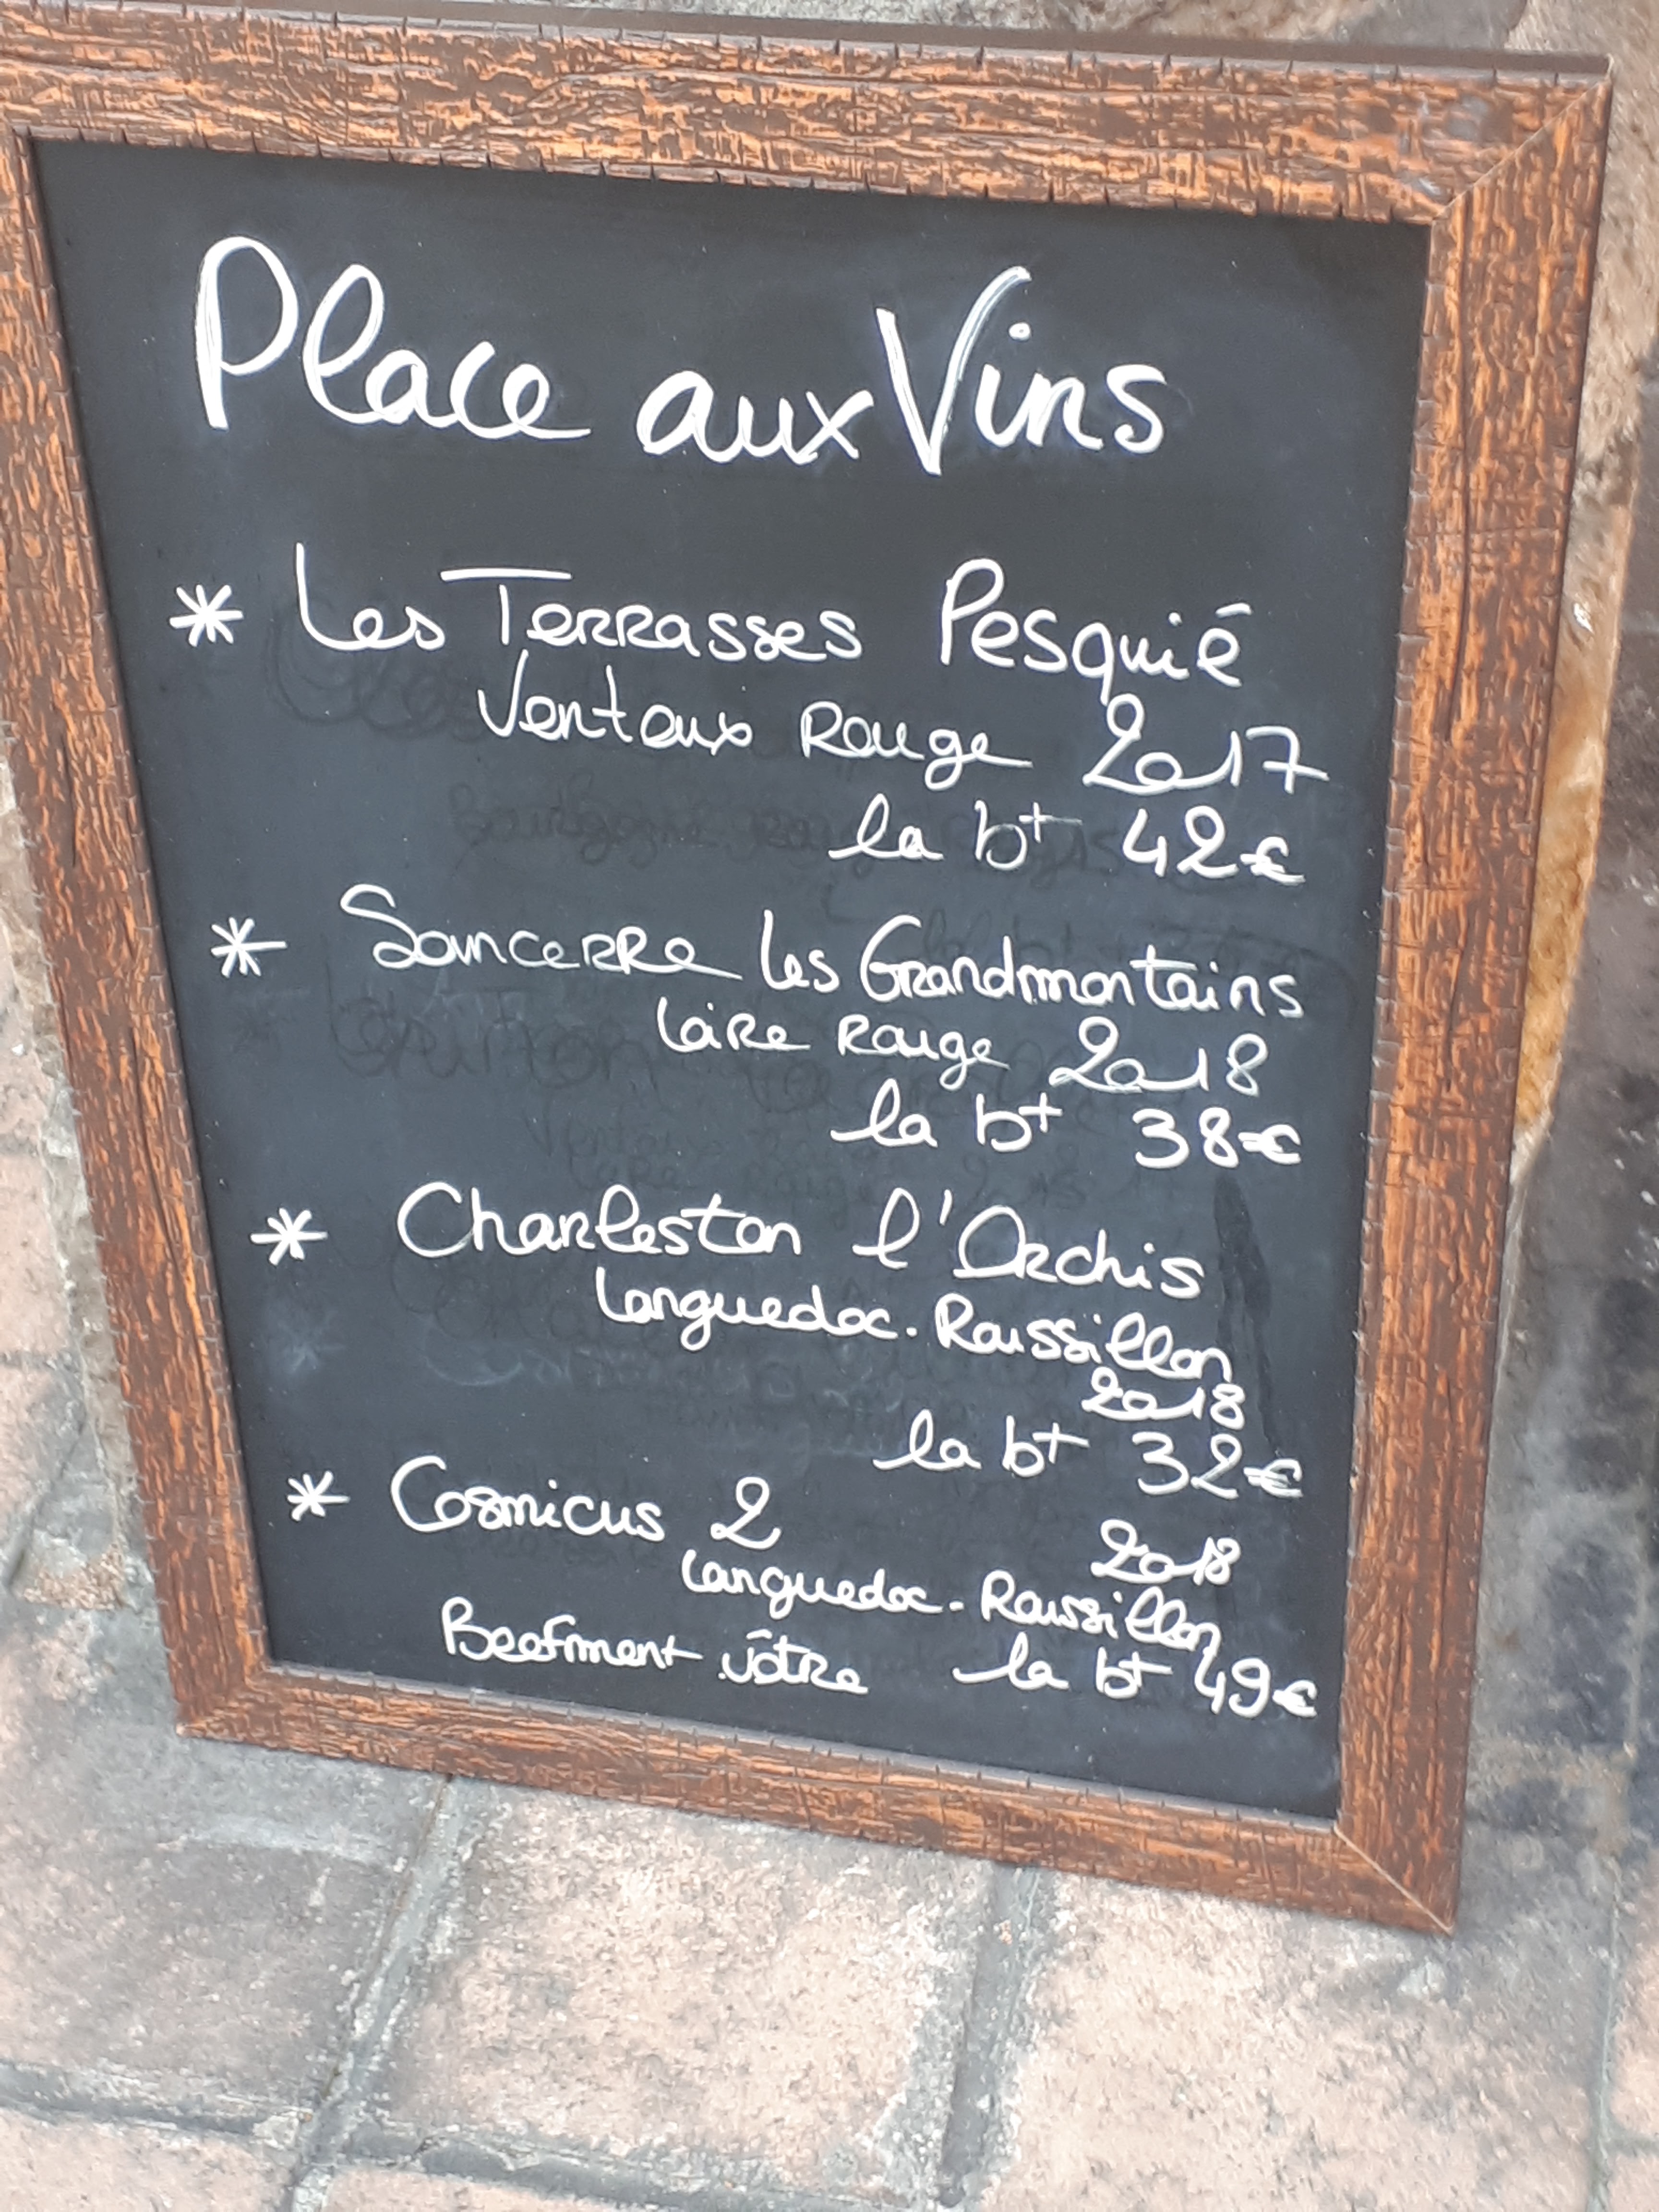 Place aux Vins
* Les Terrasses Pesquié
Ventoux Rouge 2017
la bt 42€
* Sancerre les Grandmontains
Loire Rouge 2018
la bt 38€
* Charleston l'Orchis
Languedoc-Roussillon
2018
la bt 32€
* Cosmicus 2 2018
Languedoc-Roussillon
Beefment vôtre la bt 49€